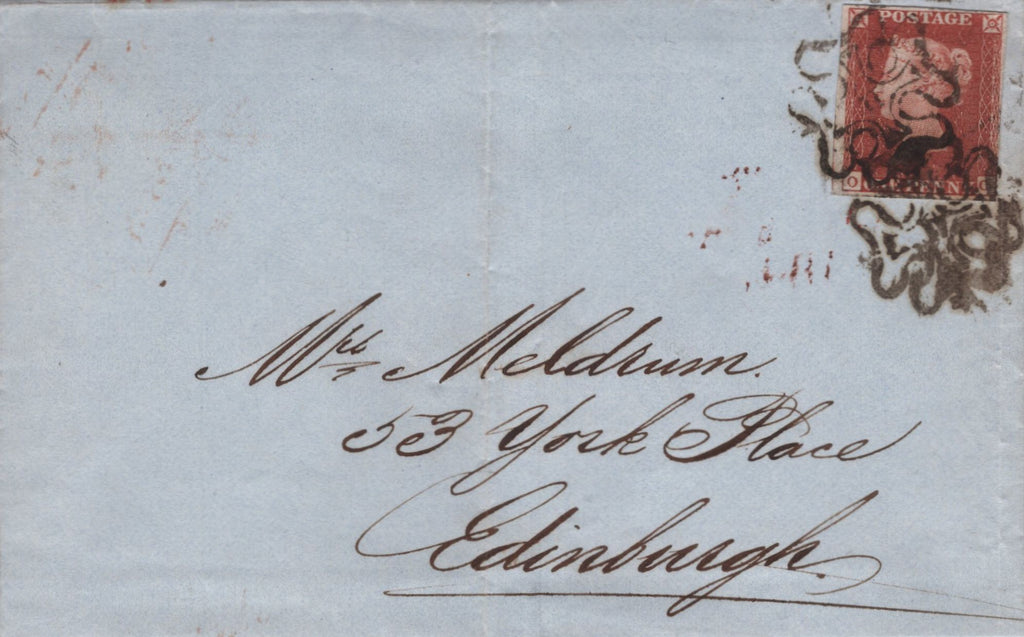 POSTAGE
Mrs Meldrum.
53 York Place
Edinburgh